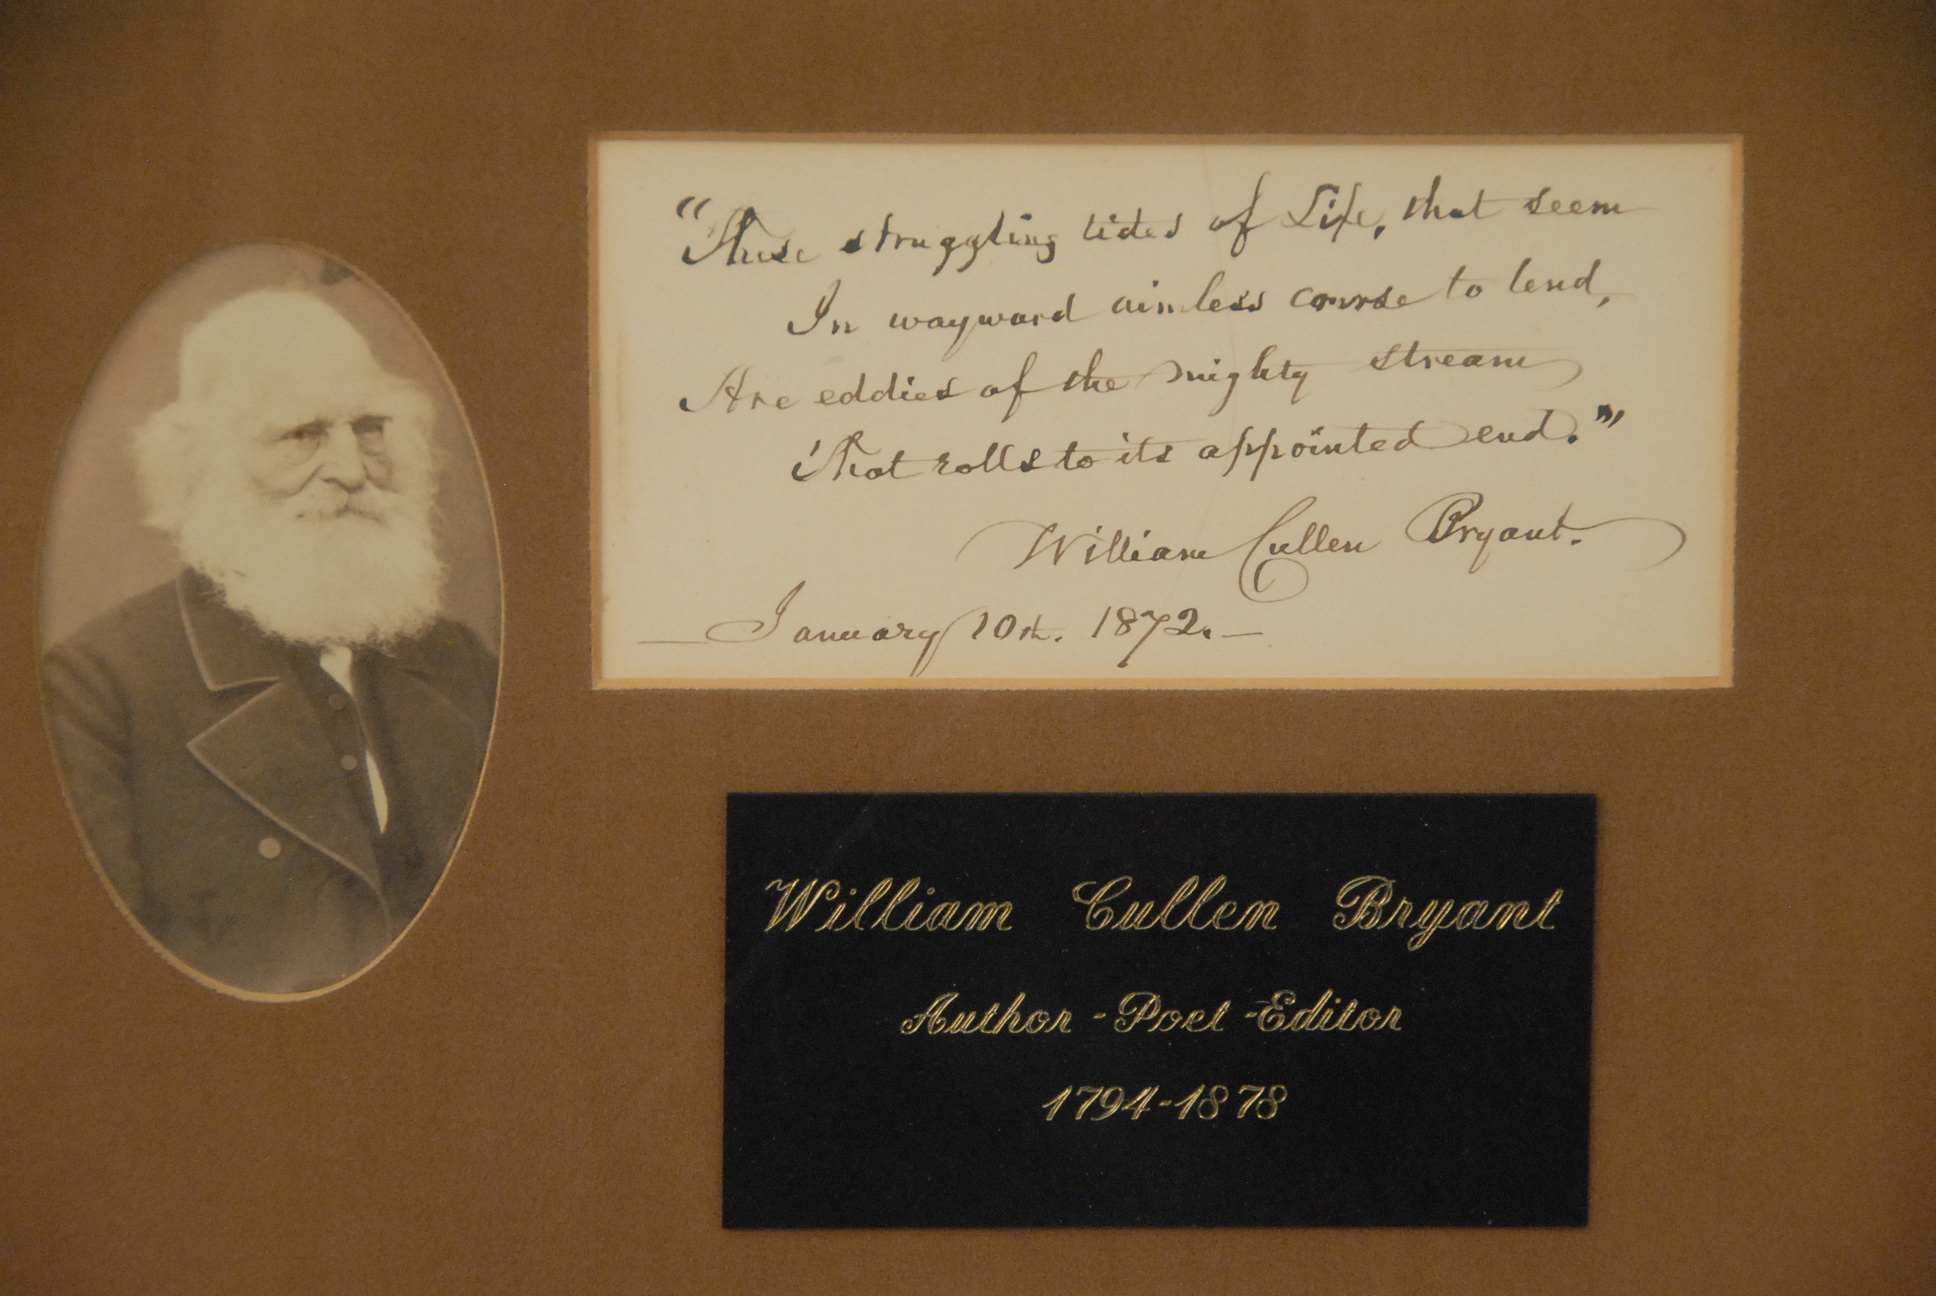 "These struggling tides of Life, that seem
In wayward aimless course to tend,
Are eddies of the mighty stream
That rolls to its appointed end."
William Cullen Bryant.
January 10th. 1872.
William Cullen Bryant
Author - Poet - Editor
1794-1878